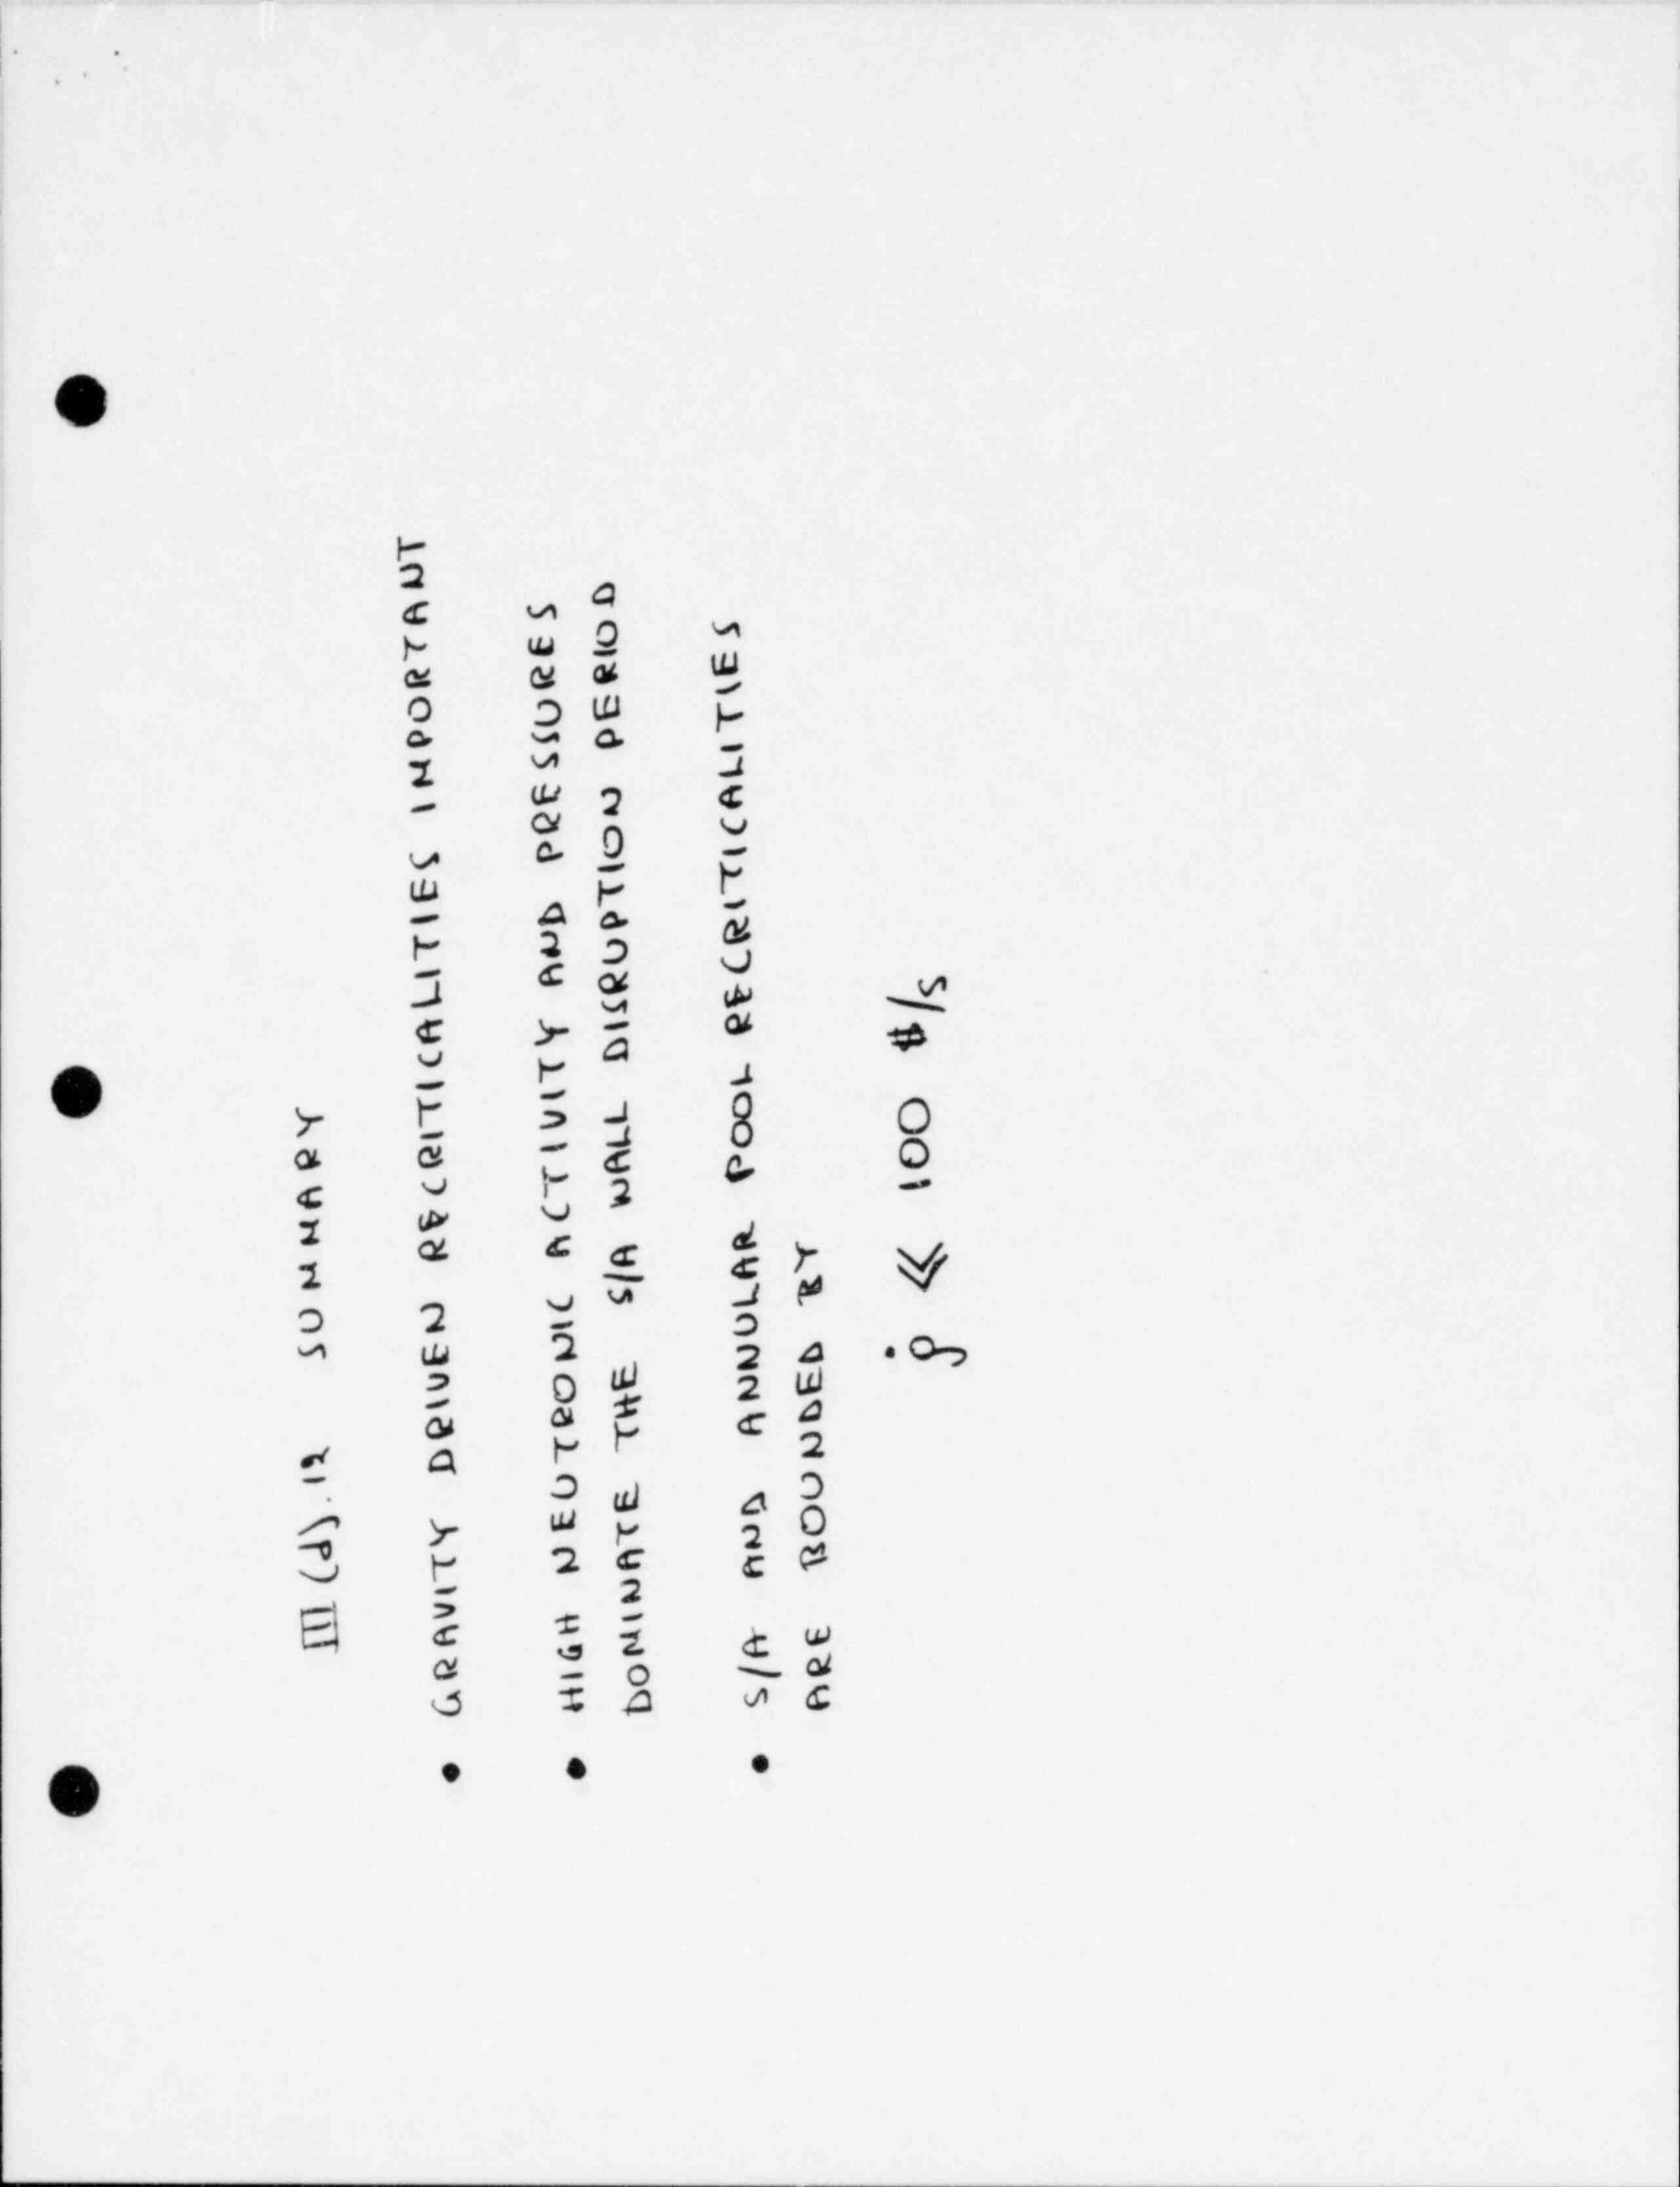 III (d).12 SUMMARY
• GRAVITY DRIVEN RECRITICALITIES IMPORTANT
• HIGH NEUTRONIC ACTIVITY AND PRESSURES
DOMINATE THE S/A WALL DISRUPTION PERIOD
• S/A AND ANNULAR POOL RECRITICALITIES
ARE BOUNDED BY
ρ̇ ≪ 100 $/S